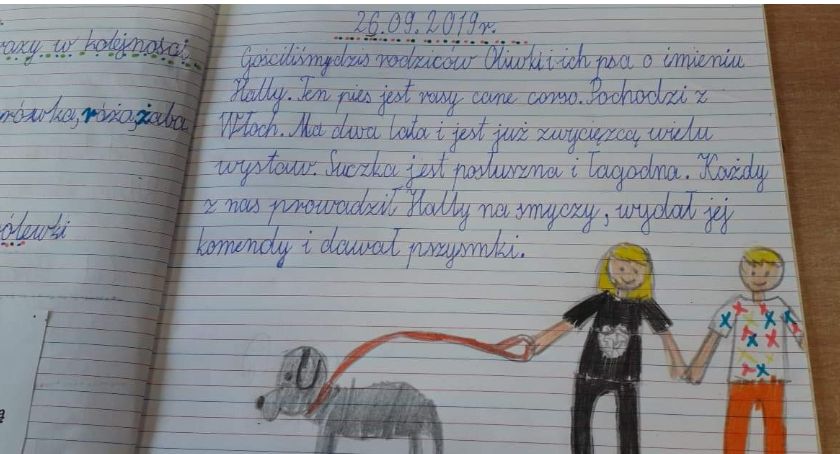 razy w kolejności
rówka, róża, żaba
ólewki
ą
26.09.2019r.
Gościliśmy dziś rodziców Oliwki i ich psa o imieniu
Hally. Ten pies jest rasy cane corso. Pochodzi z
Włoch. Ma dwa lata i jest już zwycięzcą wielu
wystaw. Suczka jest posłuszna i łagodna. Każdy
z nas prowadził Hally na smyczy, wydał jej
komendy i dawał przysmki.